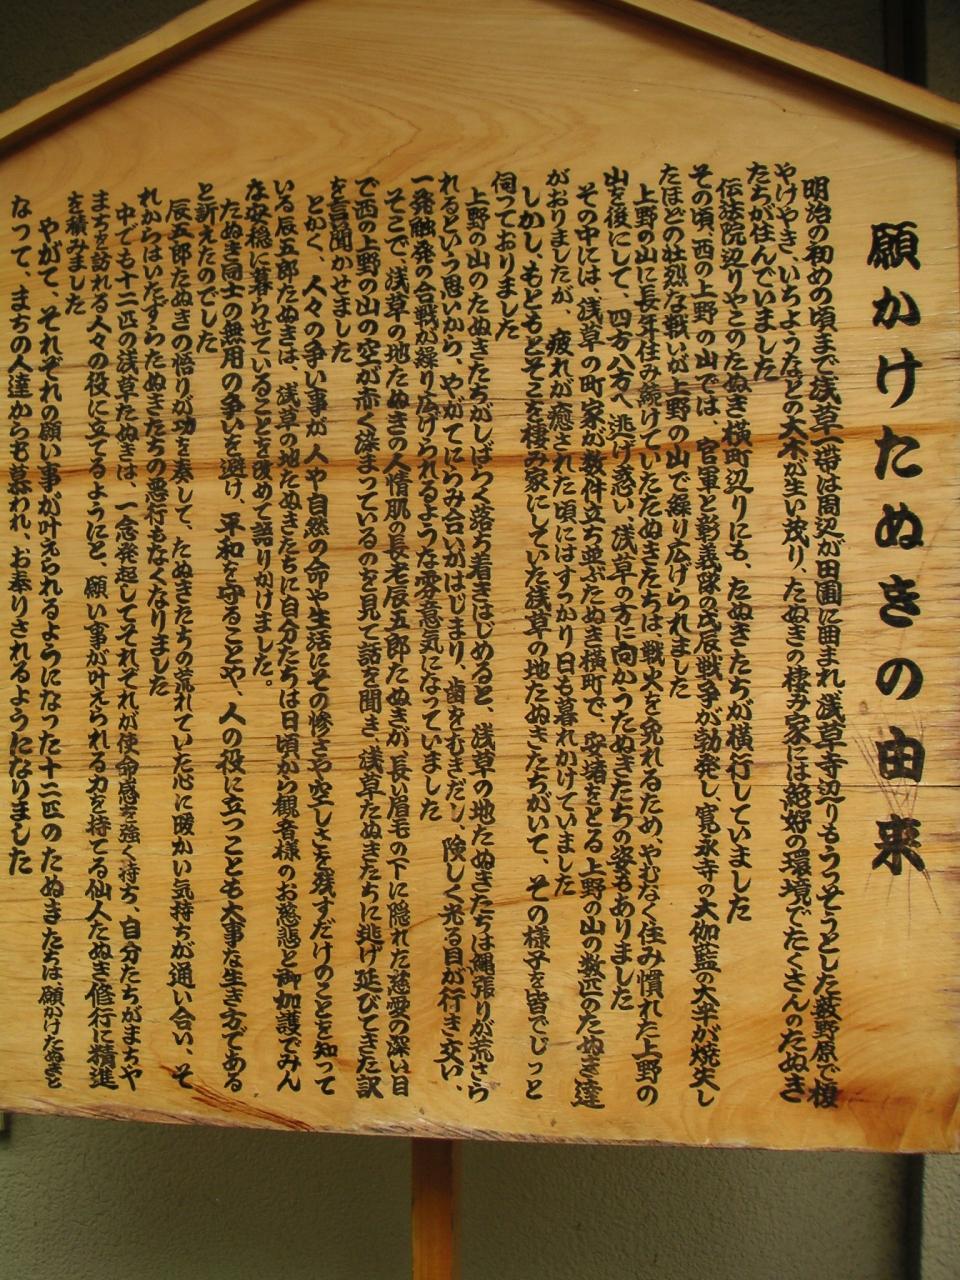 願かけたぬきの由来
明治の初めの頃まで浅草一帯は周辺が田圃に囲まれ、浅草寺辺りもうっそうとした薮野原で榎
やけやき、いちょうなどの大木が生い茂り、たぬきの棲み家には絶好の環境でたくさんのたぬき
たちが住んでいました
伝法院辺りやこのたぬき横町辺りにも、たぬきたちが横行していました
その頃、西の上野の山では、官軍と彰義隊の戊辰戦争が勃発し、寛永寺の大伽藍の大半が焼失し
たほどの壮烈な戦いが上野の山で繰り広げられました
上野の山に長年住み続けていたたぬきたちは、戦火を免れるため、やむなく住み慣れた上野の
山を後にして、四方八方へ逃げ惑い、浅草の方に向かうたぬきたちの姿もありました
その中には、浅草の町家が数件立ち並ぶたぬき横町で、安堵をとる上野の山の数匹のたぬき達
がおりましたが、疲れが癒された頃にはすっかり日も暮れかけていました
しかし、もともとそこを棲み家にしていた浅草の地たぬきたちがいて、その様子を皆でじっと
伺っておりました
上野の山のたぬきたちがしばらく落ち着きはじめると、浅草の地たぬきたちは縄張りが荒さら
れるという思いから、やがてにらみ合いがはじまり、歯をむきだし、険しく光る目が行き交い、
一発触発の合戦が繰り広げられるような雰意気になっていました
そこで、浅草の地たぬきの人情肌の長老辰五郎たぬきが、長い眉毛の下に隠れた慈愛の深い目
で西の上野の山の空が赤く染まっているのを見て話を聞き、浅草たぬきたちに逃げ延びてきた訳
を言聞かせました
とかく、人々の争い事が人や自然の命や生活にその惨さや空しさを残すだけのことを知って
いる辰五郎たぬきは、浅草の地たぬきたちに自分たちは日頃から観音様のお慈悲と御加護でみん
な安穏に暮らせていることを改めて語りかけました。
たぬき同士の無用の争いを避け、平和を守ることや、人の役に立つことも大事な生き方である
と訴えたのでした
辰五郎たぬきの悟りが功を奏して、たぬきたちの荒れていた心に暖かい気持ちが通い合い、そ
れからはいたずらたぬきたちの悪行もなくなりました
中でも十二匹の浅草たぬきは、一念発起してそれぞれが使命感を強く持ち、自分たちがまちや
まちを訪れる人々の役に立てるようにと、願い事が叶えられる力を持てる仙人たぬき修行に精進
を積みました
やがて、それぞれの願い事が叶えられるようになった十二匹のたぬきたちは、願かけたぬきと
なって、まちの人達からも慕われ、お奉りされるようになりました